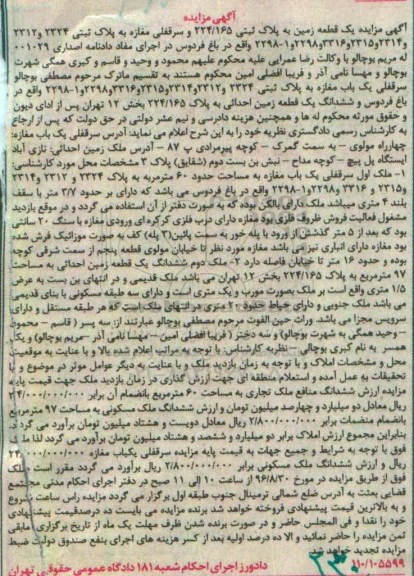 آگهی مزایده
آگهی مزایده یک قطعه زمین به پلاک ثبتی ۲۲۴/۱۶۵ و سرقفلی مغازه به پلاک ثبتی ۲۳۲۴ و۲۳۱۲
و۲۳۱۴و۲۳۱۵و۲۳۱۶و۲۲۹۸و۱-۲۲۹۸ واقع در باغ فردوس در اجرای مفاد دادنامه اصداری ۰۰۱۰۲۹
له مریم بوچالو با وکالت رضا عمرایی علیه محکوم علیهم محمود و وحید و قاسم و کبری همگی شهرت
بوچالو و مهسا نامی آذر و فریبا افضلی امین محکوم هستند به تقسیم ماترک مرحوم مصطفی بوچالو
سرقفلی یک باب مغازه به پلاک ثبتی ۲۳۲۴ و۲۳۱۲و۲۳۱۴و۲۳۱۵و۲۳۱۶و۲۲۹۸و۱-۲۲۹۸ واقع در
باغ فردوس و ششدانگ یک قطعه زمین احداثی به پلاک ۲۲۴/۱۶۵ بخش ۱۲ تهران پس از ادای دیون
و حقوق مورثه محکوم له ها و همچنین هزینه دادرسی و نیم عشر دولتی در حق دولت که پس از ارجاع
به کارشناس رسمی دادگستری نظریه خود را به این شرح اعلام می نماید: آدرس سرقفلی یک باب مغازه:
چهارراه مولوی – به سمت گمرک – کوچه پیرمرادی پ ۸۷ – آدرس ملک زمین احداثی: نازی آباد
ایستگاه پل بیچ – کوچه مداح – نبش بن بست دوم (شقایق) پلاک ۳ مشخصات محل مورد کارشناسی:
۱- ملک اول سرقفلی یک باب مغازه به مساحت حدود ۶۰ مترمربع به پلاک ۲۳۲۴ و ۲۳۱۲ و۲۳۱۴
و۲۳۱۵ و ۲۳۱۶ و۲۲۹۸و۱-۲۲۹۸ واقع در باغ فردوس می باشد که دارای بر حدود ۳/۷ متر با سقف
بلند ۴ متری میباشد ملک دارای بالکن بوده که به صورت دفتر از آن استفاده می گردد و در موقع بازدید
مشغول فعالیت فروش ظروف فلزی بود مغازه دارای درب فلزی کرکره ای ورودی مغازه با سنگ ۲۰ سانتی
بود که بعد از ۵ متر گذشتن از ورود با پله خور به سمت پائین(۳ پله) کف به صورت موزائیک فرش شده
بود مغازه دارای انباری نیز می باشد مغازه مورد نظر تا خیابان مولوی قطعه پنجم از سمت شرقی کوچه
بوده و حدود ۱۶ متر تا خیابان فاصله دارد ۲- ملک دوم ششدانگ یک قطعه زمین احداثی به مساحت
۹۷ مترمربع به پلاک ۲۲۴/۱۶۵ بخش ۱۲ تهران می باشد ملک قدیمی و در انتهای بن بست به عرض
۱/۵ متری واقع است بر ملک بصورت مورب و یک متری است و دارای سه طبقه مسکونی با بنای قدیمی
می باشد ملک جنوبی و دارای حیاط حدود ۲۰ متری در انتهای ملک است که هر طبقه مستقل و دارای
سرویس مجزا می باشد. وراث حین الفوت مرحوم مصطفی بوچالو عبارتند از: سه پسر ( قاسم – محمود
– وحید همگی به شهرت بوچالو) و سه دختر ( فریبا افضلی امین – مهسا نامی آذر – مریم بوچالو) و یک
همسر به نام کبری بوچالی – نظریه کارشناس: با توجه به مراتب اعلام شده بالا و با عنایت به موقعیت
محل و مشخصات املاک و با توجه به زمان بازدید ملک و با عنایت به دیگر عوامل موثر در موضوع و با
تحقیقات به عمل آمده و استعلام منطقه ای جهت ارزش گذاری در زمان بازدید ملک جهت قیمت پایه
مزایده ارزش ششدانگ منافع ملک تجاری به مساحت ۶۰ مترمربع بانضمام آن برابر ۲۴/۰۰۰/۰۰۰/۰۰۰
ریال معادل دو میلیارد و چهارصد میلیون تومان و ارزش ششدانگ ملک مسکونی به مساحت ۹۷ مترمربع
بانضمام منضمات برابر ۲/۸۰۰/۰۰۰/۰۰۰ ریال معادل دویست و هشتاد میلیون تومان برآورد می گردد
بنابراین مجموع ارزش املاک برابر دو میلیارد و ششصد و هشتاد میلیون تومان برآورد می گردد لذا ملک
فوق با توجه به شرایط و جمیع جهات به قیمت پایه مزایده سرقفلی یکباب مغازه ۲۴/۰۰۰/۰۰۰/۰۰۰
ریال و ارزش ششدانگ ملک مسکونی برابر ۲/۸۰۰/۰۰۰/۰۰۰ ریال برآورد می گردد مقرر است ملک
فوق از طریق مزایده در مورخ ۹۶/۸/۳۰ از ساعت ۱۰ الی ۱۱ صبح در دفتر اجرای احکام مدنی مجتمع
قضایی بعثت به آدرس ضلع شمالی ترمینال جنوب طبقه اول برگزار می گردد مزایده راس ساعت شروع
و به بالاترین قیمت پیشنهادی فروخته خواهد شد برنده مزایده می بایست ده درصدقیمت پیشنهادی
خود را نقدا و فی المجلس حاضر و در صورت برنده شدن ظرف مهلت یک ماه از تاریخ برگزاری مابقی
ثمن مزایده را حاضر نمائید و الا ده درصد اولیه بعد از کسر هزینه های اجرای بنفع صندوق دولت ضبط
مزایده تجدید خواهد شد.
۱۱۰/۱۰۵۵۹۹ دادورز اجرای احکام شعبه ۱۸۱ دادگاه عمومی حقوقی تهران